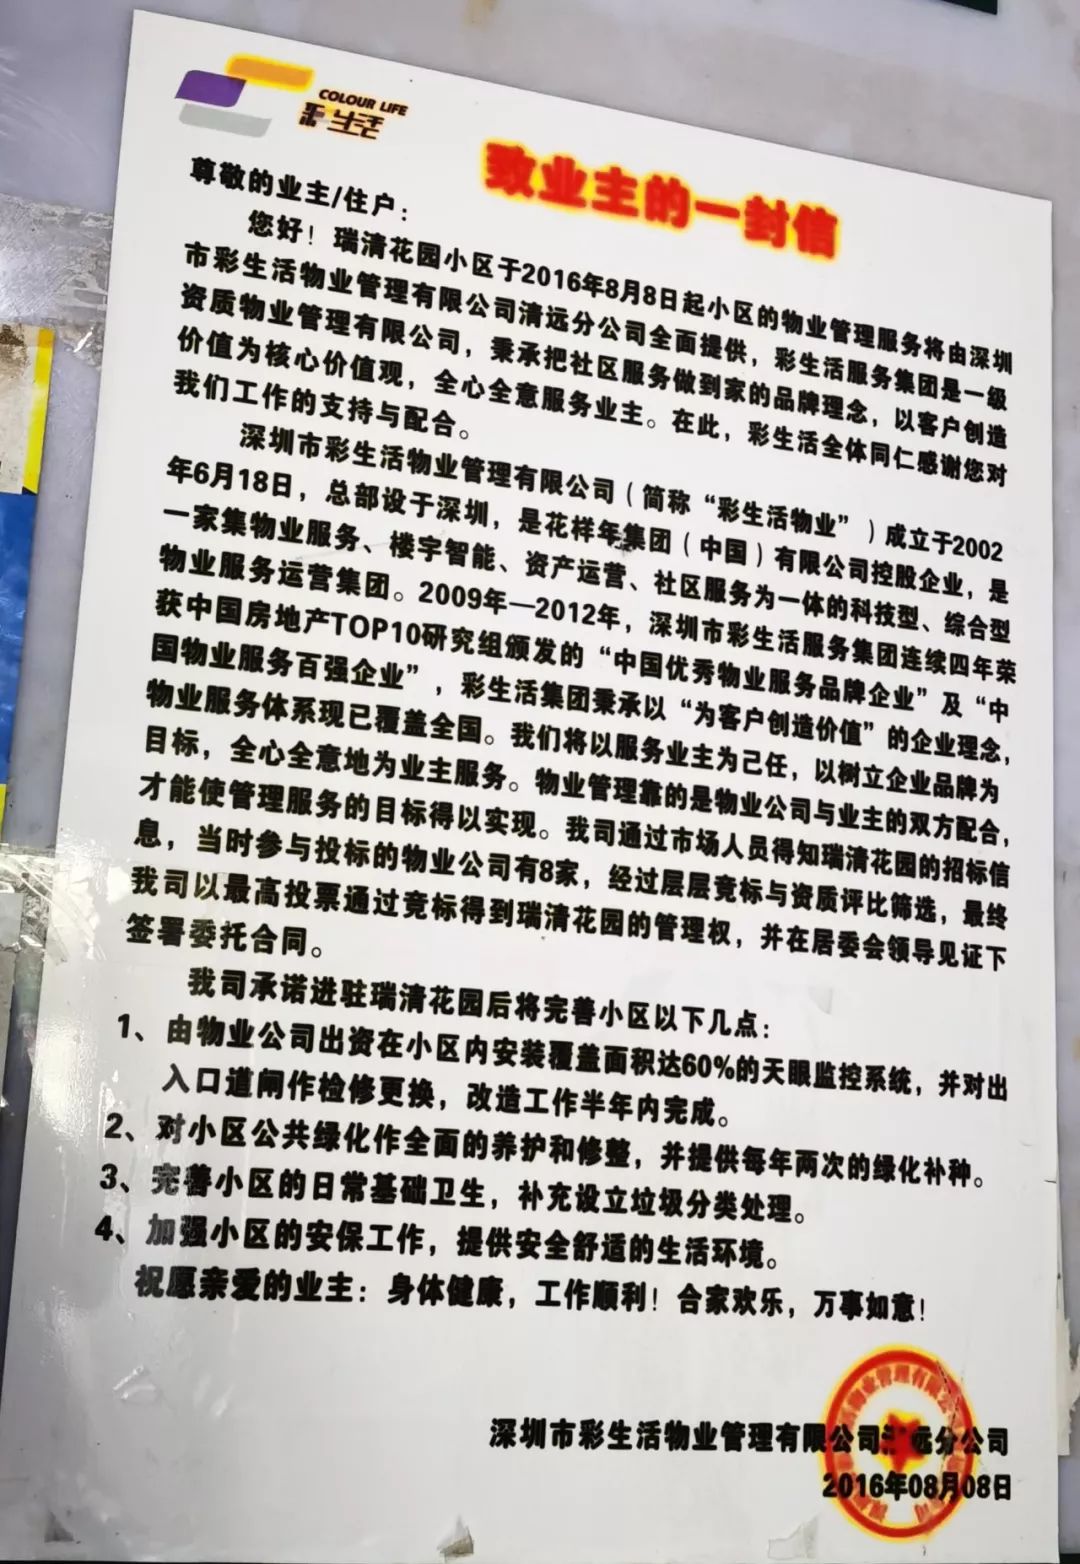 COLOUR LIFE
彩生活
致业主的一封信
尊敬的业主/住户：
您好！瑞清花园小区于2016年8月8日起小区的物业管理服务将由深圳
市彩生活物业管理有限公司清远分公司全面提供，彩生活服务集团是一级
资质物业管理有限公司，秉承把社区服务做到家的品牌理念，以客户创造
价值为核心价值观，全心全意服务业主。在此，彩生活全体同仁感谢您对
我们工作的支持与配合。
深圳市彩生活物业管理有限公司（简称“彩生活物业”）成立于2002
年6月18日，总部设于深圳，是花样年集团（中国）有限公司控股企业，是
一家集物业服务、楼宇智能、资产运营、社区服务为一体的科技型、综合型
物业服务运营集团。2009年—2012年，深圳市彩生活服务集团连续四年荣
获中国房地产TOP10研究组颁发的“中国优秀物业服务品牌企业”及“中
国物业服务百强企业”，彩生活集团秉承以“为客户创造价值”的企业理念，
物业服务体系现已覆盖全国。我们将以服务业主为己任，以树立企业品牌为
目标，全心全意地为业主服务。物业管理靠的是物业公司与业主的双方配合，
才能使管理服务的目标得以实现。我司通过市场人员得知瑞清花园的招标信
息，当时参与投标的物业公司有8家，经过层层竞标与资质评比筛选，最终
我司以最高投票通过竞标得到瑞清花园的管理权，并在居委会领导见证下
签署委托合同。
我司承诺进驻瑞清花园后将完善小区以下几点：
1、由物业公司出资在小区内安装覆盖面积达60%的天眼监控系统，并对出
入口道闸作检修更换，改造工作半年内完成。
2、对小区公共绿化作全面的养护和修整，并提供每年两次的绿化补种。
3、完善小区的日常基础卫生，补充设立垃圾分类处理。
4、加强小区的安保工作，提供安全舒适的生活环境。
祝愿亲爱的业主：身体健康，工作顺利！合家欢乐，万事如意！
深圳市彩生活物业管理有限公司清远分公司
2016年08月08日